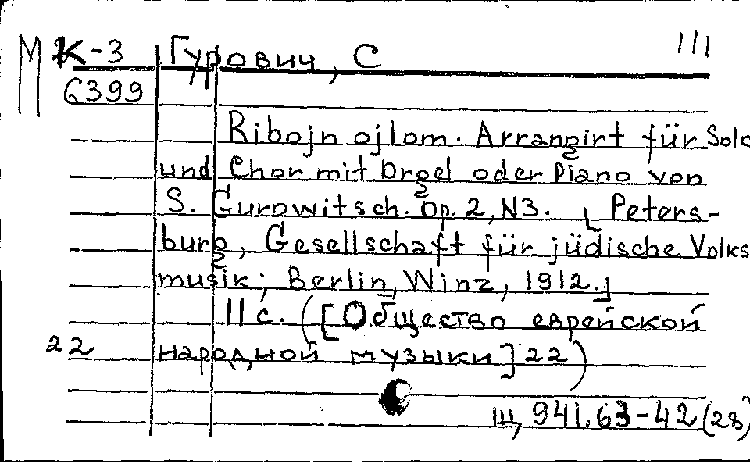 М К-3 Гурович, С III
G399
Ribojn ojlom. Arrangirt für Solo
und Chor mit Orgel oder Piano von
S. Gurowitsch. Op. 2, N3. [Peters-
burg, Gesellschaft für jüdische Volks
musik; Berlin, Winz, 1912.]
11 с. ([Общество еврейской
22 народной музыки] 22)
Ш, 941.63-42 (28)